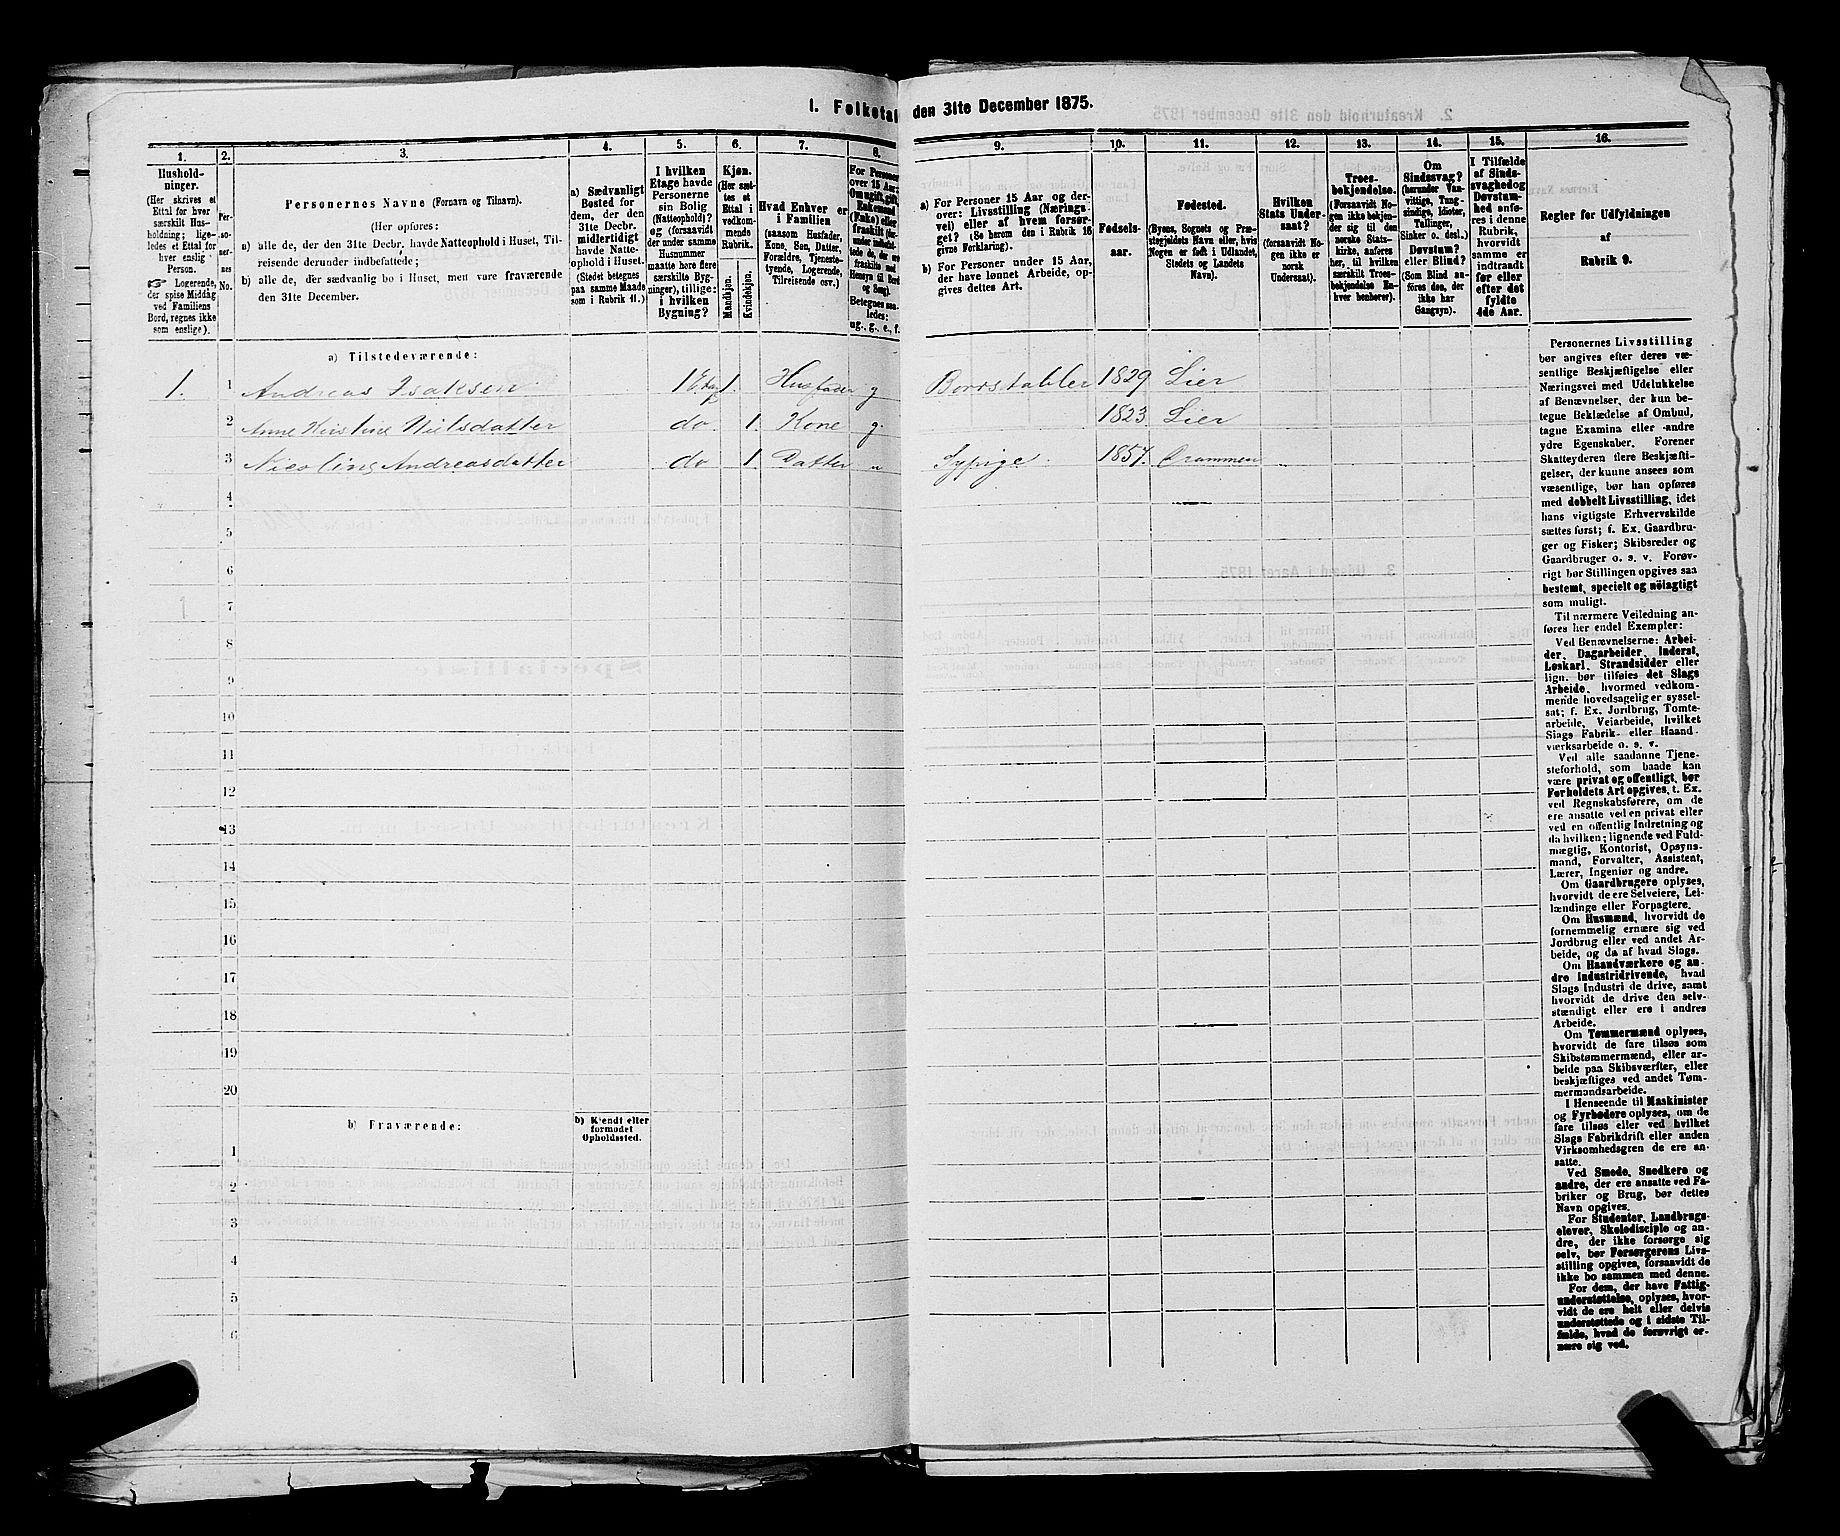 I. Folketal den 31te December 1875.
1. 2. 3. 4. 5. 6. 7. 8. 9. 10. 11. 12. 13. 14. 15. 16.
Hushold-
ninger.
(Her skrives et
Ettal for hver
særskilt Hus-
holdning; lige-
ledes et Ettal for
hver enslig
Person.
☞ Logerende,
der spise Middag
ved Familiens
Bord, regnes ikke
som enslige).
Per-
so-
ner-
nes
No.
Personernes Navne (Fornavn og Tilnavn).
(Her opføres:
a) alle de, der den 31te Decbr. havde Natteophold i Huset, Til-
reisende derunder indbefattede;
b) alle de, der sædvanlig bo i Huset, men vare fraværende
den 31te December.
a) Sædvanligt
Bosted for
dem, der den
31te Decbr.
midlertidigt
havde Natte-
ophold i Huset.
(Stedet betegnes
paa samme Maade
som i Rubrik 11.)
I hvilken
Etage havde
Personerne
sin Bolig
(Natteophold)?
og (forsaavidt
der under samme
Husnummer
maatte høre flere
særskilte Byg-
ninger), tillige:
i hvilken
Bygning?
Kjøn.
(Her sæt-
tes et
Ettal i
vedkom-
mende
Rubrik.
Mandkjøn.
Kvindekjøn.
Hvad Enhver er
i Familien
(saasom Husfader,
Kone, Søn, Datter,
Forældre, Tjeneste-
tyende, Logerende,
Tilreisende osv.)
For Personer
over 15 Aar:
Betegnes saa-
ledes:
ug., g., e., f.
a) For Personer 15 Aar og der-
over: Livsstilling (Nærings-
vei) eller af hvem forsør-
get? (Se herom den i Rubrik 16
givne Forklaring).
b) For Personer under 15 Aar,
der have lønnet Arbeide, op-
gives dettes Art.
Fødsels-
aar.
Fødested.
(Byens, Sognets og Præ-
stegjeldets Navn eller, hvis
Nogen er født i Udlandet,
Stedets og Landets
Navn).
Hvilken
Stats Under-
saat?
(forsaavidt No-
gen ikke er
norsk
Undersaat).
Troes-
bekjendelse.
(Forsaavidt No-
gen ikke bekjen-
der sig til den
norske Stats-
kirke, anføres
her, til hvilken
særskilt Troes-
bekjendelse En-
hver henhører).
Om
Sindssvag?
(herunder Van-
vittige, Tung-
sindige, Idioter,
Tullinger,
Sinker o. desl.)
Døvstum?
eller Blind?
(Som Blind an-
føres den, der
ikke har
Gangsyn).
I Tilfælde
af Sinds-
svaghed og
Døvstum-
hed anfø-
res i denne
Rubrik,
hvorvidt
samme er
indtraadt
før eller
efter det
fyldte
4de Aar.
Regler for Udfyldningen
af
Rubrik 9.
a) Tilstedeværende:
1. 1 Andreas Isaksen 1 Etag 1. Husfader g Bordstabler 1829 Lier
2 Anne Kirstine Nilsdatter do. 1. Kone g. 1823 Lier
3 Nicoline Andreasdatter do 1. Datter u Sypige. 1857. Drammen
4
5
6
7
8
9
10
11
12
13
14
15
16
17
18
19
20
b) Fraværende:
b) Kjendt eller
formodet
Opholdssted.
1
2
3
4
5
6
Personernes Livsstilling
bør angives efter deres væ-
sentlige Beskjæftigelse eller
Næringsvei med Udelukkelse
af Benævnelser, der kun be-
tegne Beklædelse af Ombud,
tagne Examina eller andre
ydre Egenskaber. Forener
Skatteyderen flere Beskjæfti-
gelser, der kunne ansees som
væsentlige, bør han opføres
med dobbelt Livsstilling, idet
hans vigtigste Erhvervskilde
sættes først; f. Ex. Gaardbru-
ger og Fisker; Skibsreder og
Gaardbruger o. s. v. Forøv-
rigt bør Stillingen opgives saa
bestemt, specielt og nöiagtigt
som muligt.
Til nærmere Veiledning an-
føres her endel Exempler:
Ved Benævnelserne: Arbei-
der, Dagarbeider, Inderst,
Løskarl, Strandsidder eller
lign. bør tilføies det Slags
Arbeide, hvormed vedkom-
mende hovedsagelig er syssel-
sat; f. Ex. Jordbrug, Tomte-
arbeide, Veiarbeide, hvilket
Slags Fabrik- eller Haand-
værksarbeide o. s. v.
Ved alle saadanne Tjene-
steforhold, som baade kan
være privat og offentligt, bør
Forholdets Art opgives, t. Ex.
ved Regnskabsførere, om de
ere ansatte ved en privat eller
ved en offentlig Indretning og
da hvilken; lignende ved Fuld-
mægtig, Kontorist, Opsyns-
mand, Forvalter, Assistent,
Lærer, Ingeniør og andre.
Om Gaardbrugere oplyses,
hvorvidt de ere Selveiere, Lei-
lændinge eller Forpagtere.
Om Husmænd, hvorvidt de
fornemmelig ernære sig ved
Jordbrug eller ved andet Ar-
beide, og da af hvad Slags.
Om Haandværkere og an-
dre Industridrivende, hvad
Slags Industri de drive, samt
hvorvidt de drive den selv-
stændigt eller ere i andres
Arbeide.
Om Tømmermænd oplyses,
hvorvidt de fare tilsøs som
Skibstømmermænd, eller ar-
beide paa Skibsværfter, eller
beskjæftiges ved andet Tøm-
mermandsarbeide.
I Henseende til Maskinister
og Fyrbødere oplyses, om de
fare tilsøs eller ved hvilket
Slags Fabrikdrift eller anden
Virksomhedsgren de ere an-
satte.
Ved Smede, Snedkere og
andre, der ere ansatte ved Fa-
briker og Brug, bør dettes
Navn opgives.
For Studenter, Landbrugs-
elever, Skoledisciple og an-
dre, der ikke forsørge sig
selv, bør Forsørgerens Livs-
stilling opgives, forsaavidt de
ikke bo sammen med denne.
For dem, der have Fattig-
understøttelse, oplyses, hvor-
vidt de ere helt eller delvis
understøttede og i sidste Til-
fælde, hvad de forøvrigt er-
nære sig ved.